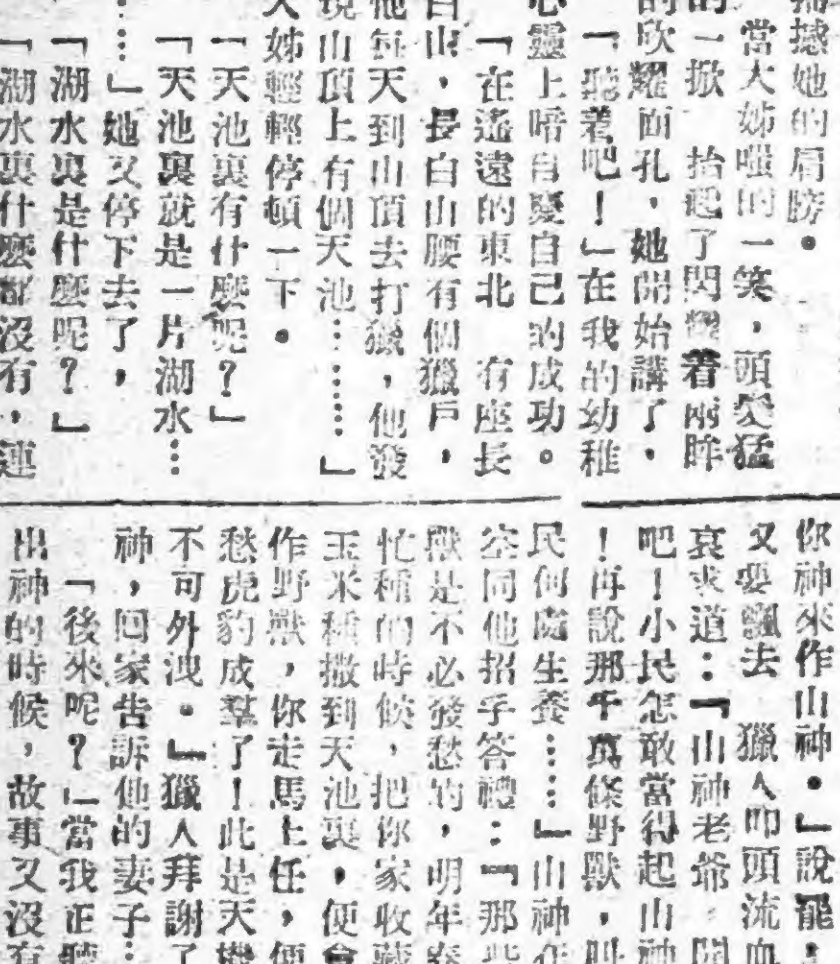 撼她的肩膀。
當大姊嗤的一笑，頭髮猛
的一掀 抬起了閃耀着兩眸
的欣耀面孔，她開始講了。
「聽着吧！」在我的幼稚
心靈上暗自慶自己的成功。
「在遙遠的東北 有座長
白山，長白山腰有個獵戶，
他每天到山頂去打獵，他發
現山頂上有個天池………」
大姊輕輕停頓一下。
「天池裏有什麼呢？」
「天池裏就是一片湖水…
…」她又停下去了，
「湖水裏是什麼呢？」
「湖水裏什麼都沒有，連
你神來作山神。」說罷！
又要飄去 獵人叩頭流血
哀求道：『山神老爺，開
吧！小民怎敢當得起山神
！再說那千萬條野獸，叫
民何處生養……』山神在
空同他招手答禮：『那些
獸是不必發愁的，明年春
忙種的時候，把你家收藏
玉米種撒到天池裏，便會
作野獸，你走馬上任，便
愁虎豹成羣了！此是天機
不可外洩。』獵人拜謝了
神，回家告訴他的妻子…
「後來呢？」當我正聽
出神的時候，故事又沒有